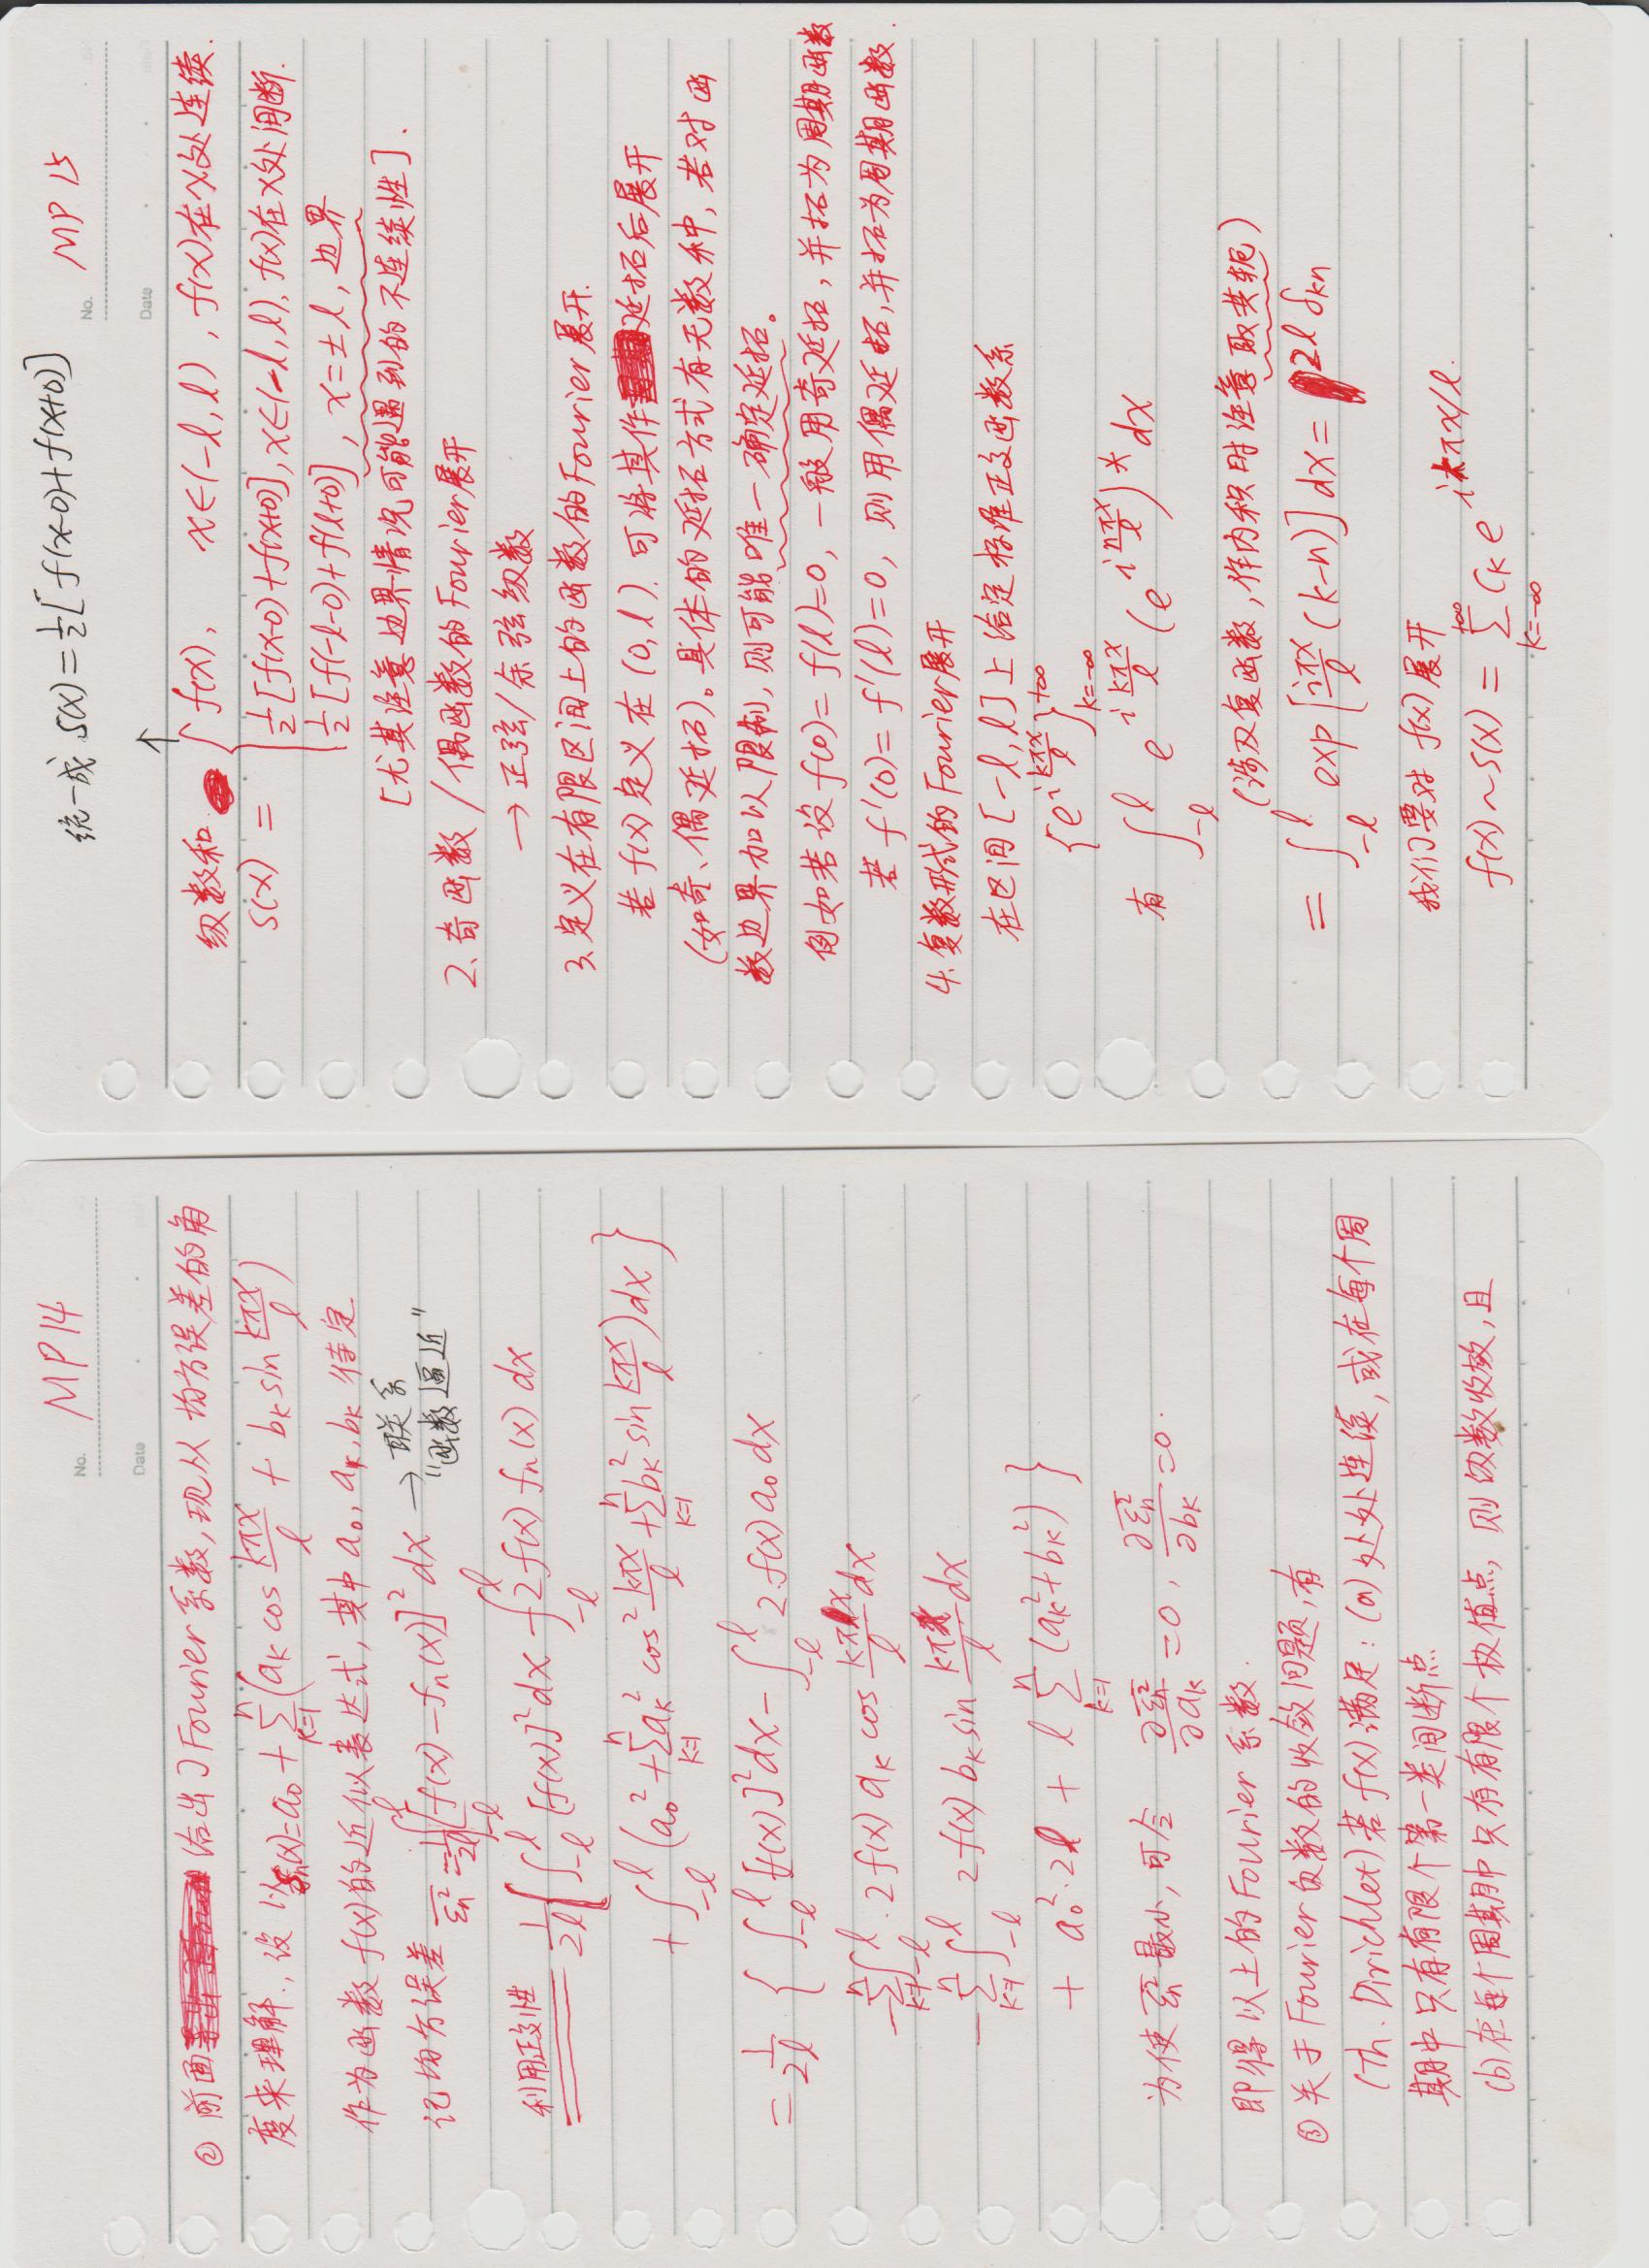 No. MP14
Date
② 前面给出了Fourier系数,现从均方误差的角
度来理解.,设以fₙ(x)=a₀+∑_{k=1}^{n}(a_k cos kπx/l + b_k sin kπx/l)
作为函数f(x)的近似表达式,其中a₀,a_k,b_k待定
记均方误差 \overline{ε_n^2} = 1/2l ∫_{-l}^{l}[f(x)-fₙ(x)]² dx → 联系
"函数逼近"
利用正交性 1/2l { ∫_{-l}^{l} [f(x)]² dx - ∫_{-l}^{l} 2f(x) fₙ(x) dx
+ ∫_{-l}^{l} (a₀² + ∑_{k=1}^{n} a_k² cos² kπx/l + ∑_{k=1}^{n} b_k² sin kπx/l) dx }
= 1/2l { ∫_{-l}^{l} [f(x)]² dx - ∫_{-l}^{l} 2f(x) a₀ dx
- ∑_{k=1}^{n} ∫_{-l}^{l} 2f(x) a_k cos kπx/l dx
- ∑_{k=1}^{n} ∫_{-l}^{l} 2f(x) b_k sin kπx/l dx
+ a₀²·2l + l ∑_{k=1}^{n} (a_k²+b_k²) }
为使 \overline{ε_n^2} 最小,可令 ∂\overline{ε_n^2}/∂a_k =0, ∂\overline{ε_n^2}/∂b_k =0.
即得以上的Fourier系数.
③ 关于Fourier级数的收敛问题,有
(Th. Dirichlet)若f(x)满足:(a)处处连续,或在每个周
期中只有有限个第一类间断点
(b)在每个周期中只有有限个极值点,则级数收敛,且
统一成 S(x)=½[f(x-0)+f(x+0)]
No. MP 15
Date
↑
级数和 { f(x), x∈(-l,l), f(x)在x处连续.
S(x) = ½[f(x-0)+f(x+0)], x∈(-l,l), f(x)在x处间断.
½[f(-l-0)+f(l+0)], x=±l,边界
[尤其注意边界情况可能遇到的不连续性].
2. 奇函数/偶函数的Fourier展开
→ 正弦/余弦级数
3. 定义在有限区间上的函数的Fourier展开.
若f(x)定义在(0,l).可将其作延拓后展开
(如奇、偶延拓)。具体的延拓方式有无数种,若对函
数边界加以限制,则可能唯一确定延拓。
例如若设f(0)=f(l)=0,一般用奇延拓,并拓为周期函数
若f'(0)=f'(l)=0,则用偶延拓,并拓为周期函数.
4. 复数形式的Fourier展开
在区间[-l,l]上给定标准正交函数系
{e^{i kπx/l}}_{k=-∞}^{+∞}
有 ∫_{-l}^{l} e^{i kπx/l} (e^{i nπx/l})* dx
(涉及复函数,作内积时注意取共轭)
= ∫_{-l}^{l} exp[iπx/l (k-n)] dx = 2l δ_{kn}
我们要对f(x)展开
f(x)~S(x) = ∑_{k=-∞}^{+∞} C_k e^{ikπx/l}.